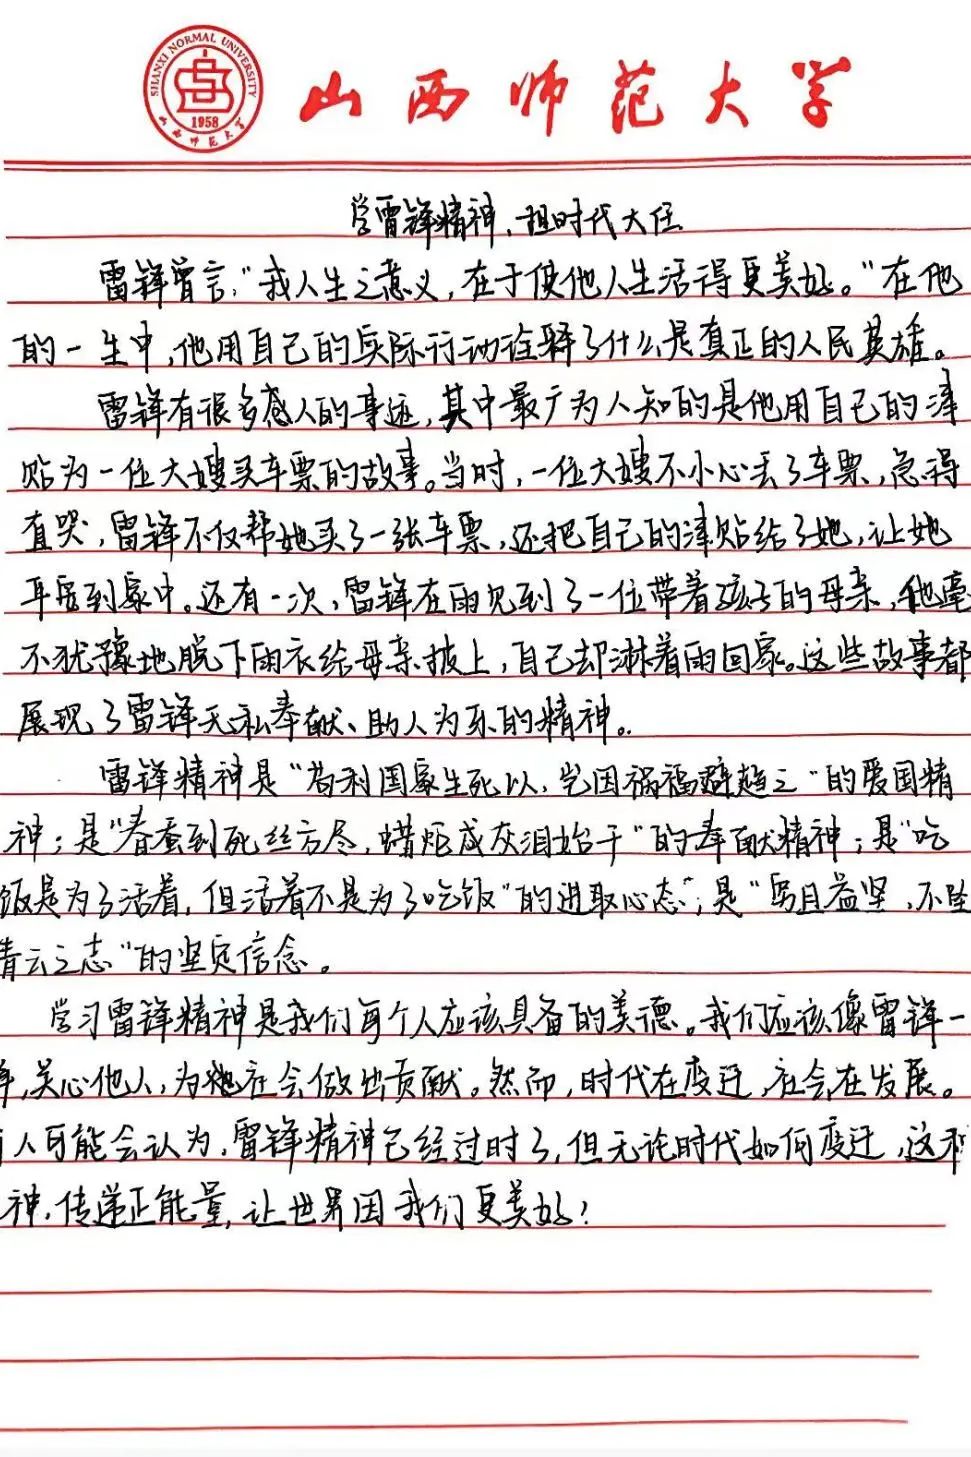 SHANXI NORMAL UNIVERSITY
1958
山西师范大学
山西师范大学
学雷锋精神，担时代大任
雷锋曾言："我人生之意义，在于使他人生活得更美好。"在他
的一生中，他用自己的实际行动诠释了什么是真正的人民英雄。
雷锋有很多感人的事迹，其中最广为人知的是他用自己的津
贴为一位大嫂买车票的故事。当时，一位大嫂不小心丢了车票，急得
直哭，雷锋不仅帮她买了一张车票，还把自己的津贴给了她，让她
平安到家中。还有一次，雷锋在雨见到了一位带着孩子的母亲，他毫
不犹豫地脱下雨衣给母亲披上，自己却淋着雨回家。这些故事都
展现了雷锋无私奉献、助人为乐的精神。
雷锋精神是"苟利国家生死以，岂因祸福避趋之"的爱国精
神；是"春蚕到死丝方尽，蜡炬成灰泪始干"的奉献精神；是"吃
饭是为了活着，但活着不是为了吃饭"的进取心态；是"穷且益坚，不坠
青云之志"的坚定信念。
学习雷锋精神是我们每个人应该具备的美德。我们应该像雷锋一
，关心他人，为社会做出贡献。然而，时代在变迁，社会在发展。
人可能会认为，雷锋精神已经过时了，但无论时代如何变迁，这
神，传递正能量，让世界因我们更美好！